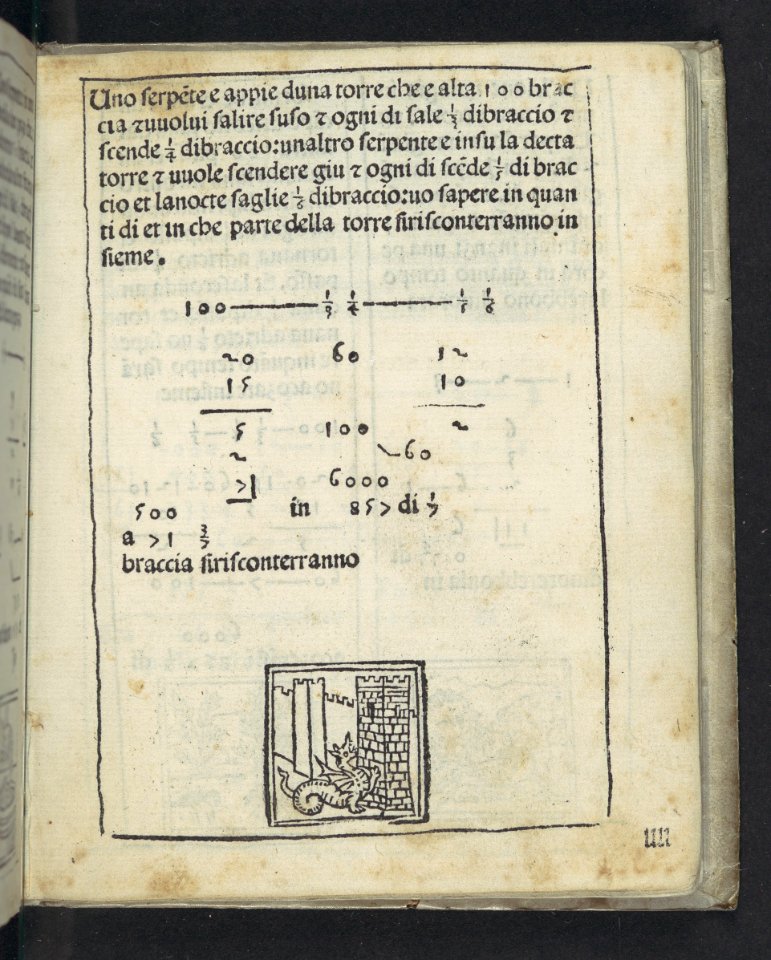 Uno serpẽte e appie duna torre che e alta 100 brac
cia ⁊ uuolui salire suso ⁊ ogni di sale 1/3 dibraccio ⁊
scende 1/4 dibraccio: unaltro serpente e insu la decta
torre ⁊ uuole scendere giu ⁊ ogni di scẽde 1/5 di brac
cio et lanocte saglie 1/6 dibraccio: uo sapere in quan
ti di et in che parte della torre sirisconterranno in
sieme.
100 — 1/3 1/4 — 1/5 1/6
20 60 12
15 10
5 100 2
2 60
7 | 6000
500 in 857 di 1/7
a 71 3/7
braccia sirisconterranno
IIII